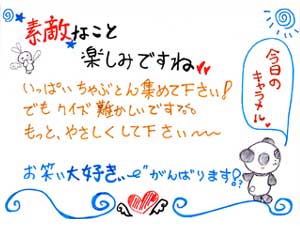 素敵なこと
楽しみですね
いっぱいちゃぶとん集めて下さい!
でもクイズ難かしいですな。
もっと、やさしくして下さい〜〜
お笑い大好き!!
がんばります!?
今日の
キャラメル